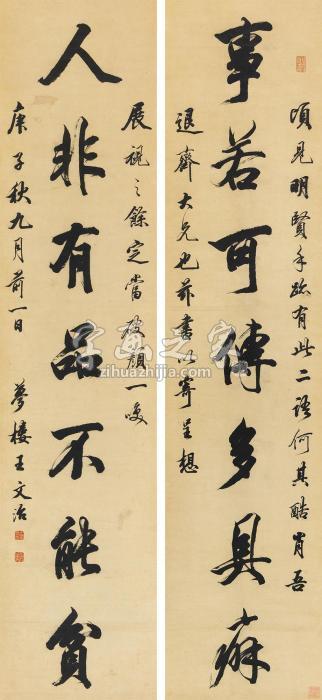 頃見明賢手跡有此二語何其酷肖吾
事若可傳多具癖
退齋大兄也茲書以寄呈想
展視之餘定當破顏一咲
人非有品不能貧
庚子秋九月前一日 夢樓王文治
字画之家
zihuazhijia.com